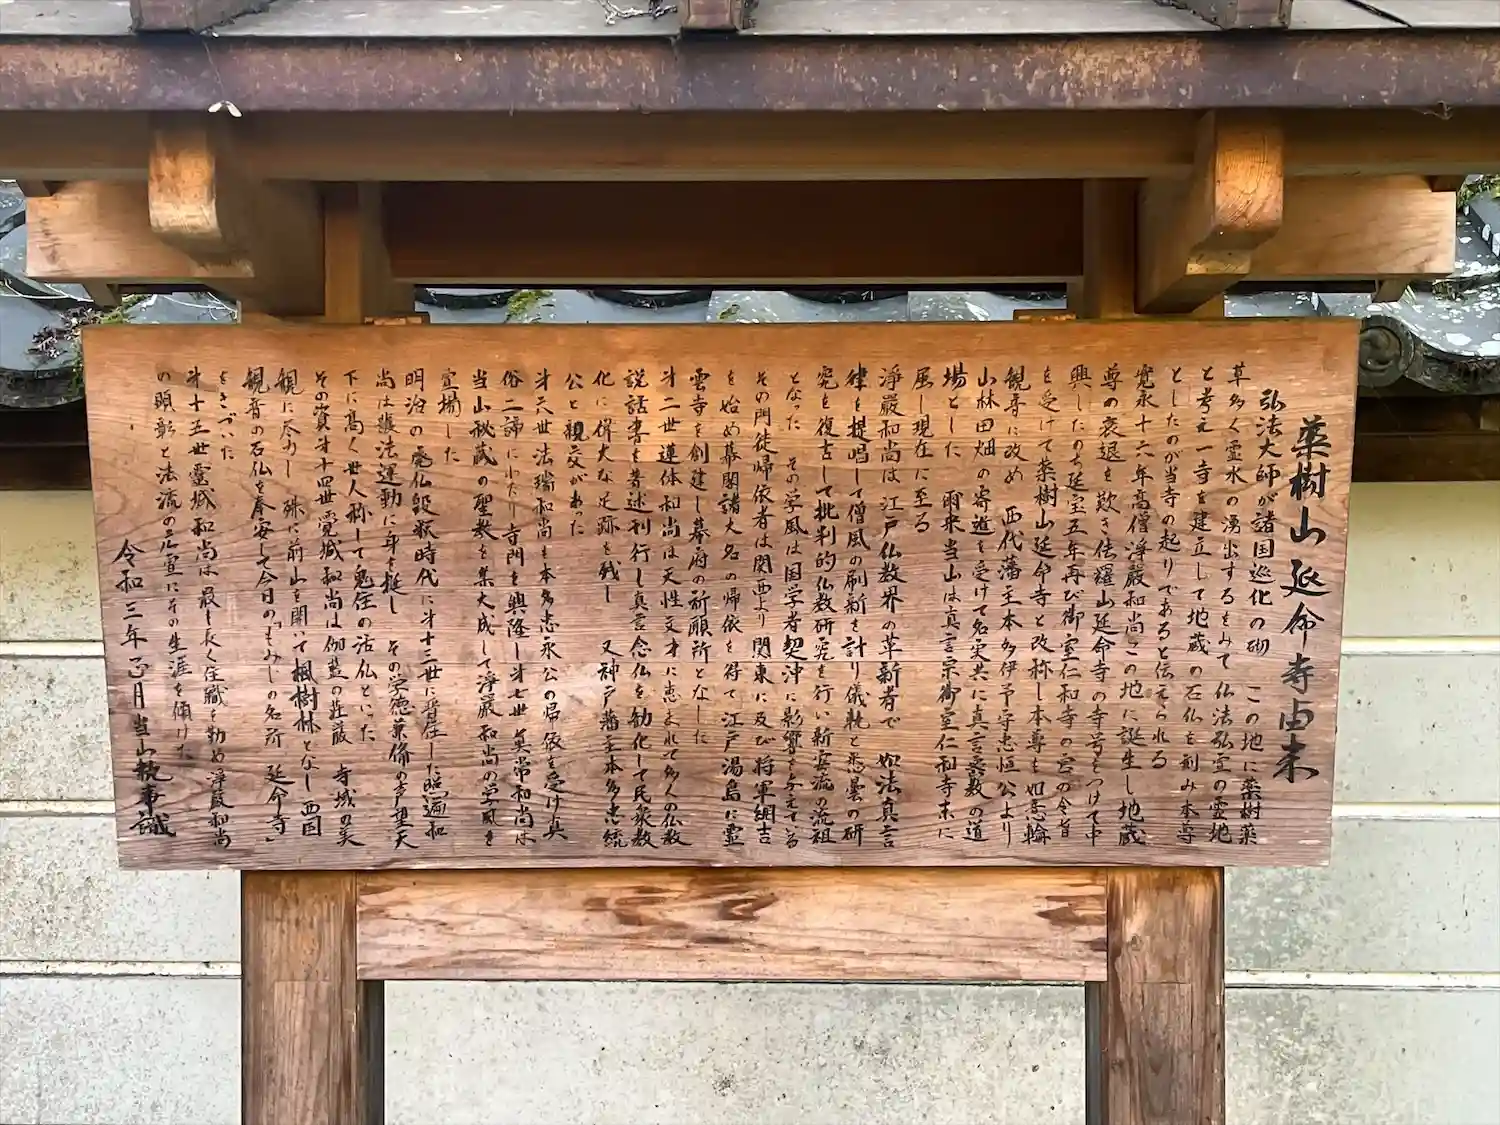 薬樹山延命寺由来
弘法大師が諸国巡化の砌 この地に薬樹薬
草多く霊水の湧出するをみて仏法弘宣の霊地
と考え一寺を建立して地蔵の石仏を刻み本尊
としたのが当寺の起りであると伝えられる
寛永十六年高僧浄厳和尚この地に誕生し地蔵
尊の衰退を歎き佉羅山延命寺の寺号をつけて中
興したのち延宝五年再び御室仁和寺の宮の令旨
を受けて薬樹山延命寺と改称し本尊も如意輪
観音に改め 西代藩主本多伊予守忠恒公より
山林田畑の寄進を受けて名実共に真言密教の道
場とした 爾来当山は真言宗御室仁和寺末に
属し現在に至る
浄厳和尚は江戸仏教界の革新者で 如法真言
律を提唱して僧風の刷新を計り儀軌と悉曇の研
究を復古して批判的仏教研究を行い新安流の流祖
となった その学風は国学者契沖に影響を与えている
その門徒帰依者は関西より関東に及び将軍綱吉
を始め幕閣諸大名の帰依を得て江戸湯島に霊
雲寺を創建し幕府の祈願所となした
才二世蓮体和尚は天性文才に恵まれて多くの仏教
説話書を著述刊行し真言念仏を勧化して民衆教
化に偉大な足跡を残し 又神戸藩主本多忠統
公と親交があった
才六世法瑞和尚も本多忠永公の帰依を受け真
俗二諦にわたり寺門を興隆し才七世真常和尚は
当山秘蔵の聖教を集大成して浄厳和尚の学風を
宣揚した
明治の廃仏毀釈時代に才十三世に晋住した照遍和
尚は護法運動に身を挺し その学徳兼備の声望天
下に高く世人称して鬼住の活仏といった
その資才十四世覚城和尚は伽藍の荘厳 寺域の美
観に尽力し 殊に前山を開いて楓樹林となし 西国
観音の石仏を奉安して今日の「もみじの名所 延命寺」
をきづいた
才十五世霊城和尚は最も長く住職を勤め浄厳和尚
の顕彰と法流の広宣にその生涯を傾けた
令和三年正月当山執事識